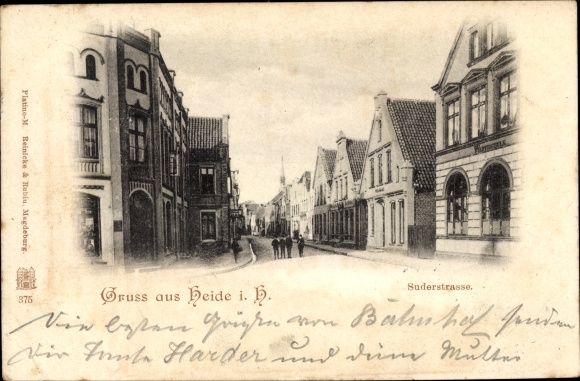 Gruss aus Heide i. H.
Suderstrasse.
Platino-M. Reinicke & Rubin, Magdeburg.
375
Die besten Grüße von Bahnhof senden
Dir Tante Harder und deine Mutter